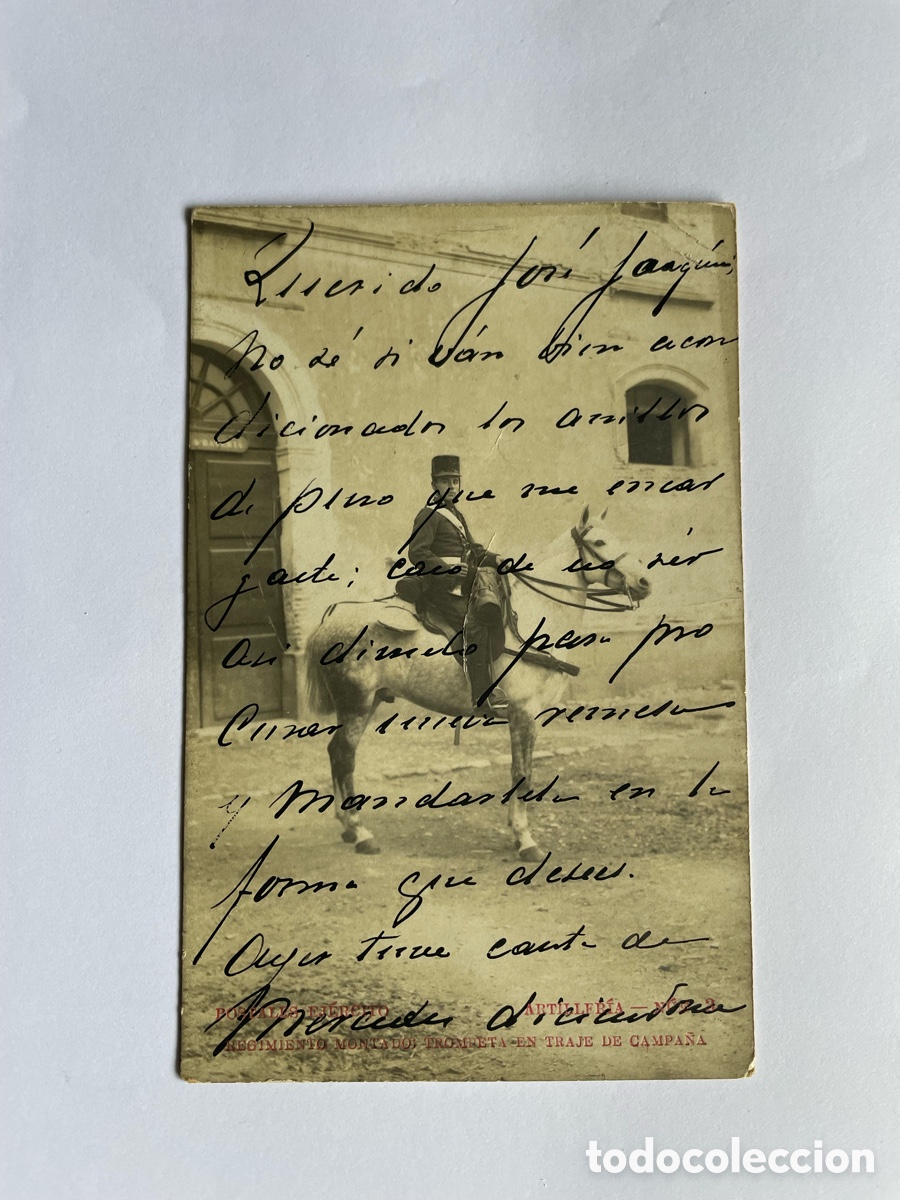 Querido José Joaquín,
No sé si ván bien acon
dicionados los anillos
de puro que me encar
gaste; caso de no sér
asi dimelo para pro
curar nueva remesa
y Mandartela en la
forma que desees.
Ayer tuve carta de
Mercedes diciendome
POSTALES EJÉRCITO ARTILLERÍA — NÚM. 2
REGIMIENTO MONTADO: TROMPETA EN TRAJE DE CAMPAÑA
todocoleccion